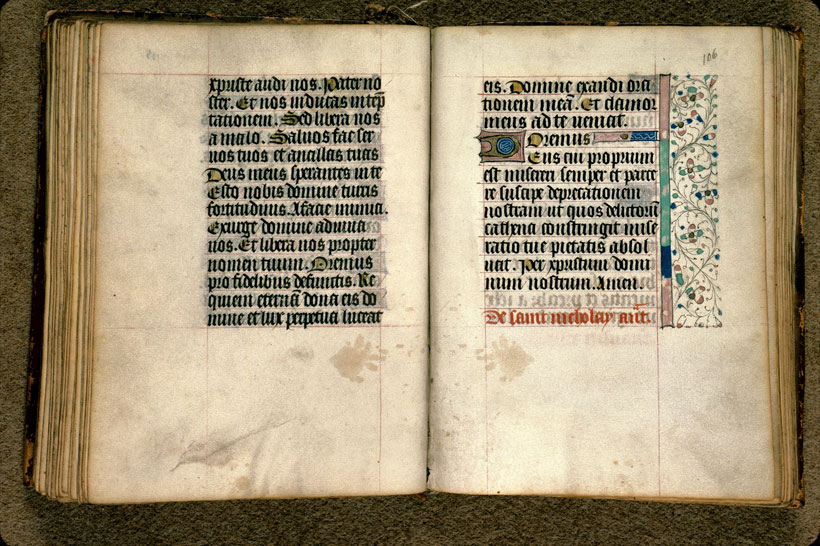 xpriste audi nos. Pater no
ster. Et nos inducas in tep
tationem. Sed libera nos
a malo. Saluos fac ser
uos tuos et ancillas tuas
Deus meus sperantes in te
Esto nobis domine turris
fortitudinis. A facie inimici.
Exurge domine adiuua
nos. Et libera nos propter
nomen tuum. Oremus
pro fidelibus defunctis. Re
quiem eternā dona eis do
mine et lux perpetua luceat
106
eis. Domine exaudi ora
tionem meā. Et clamor
meus ad te veniat.
Oremus
Deus cui proprium
est misereri semper et parce
re suscipe deprecationem
nostram ut quos delictorū
cathena constringit mise
ratio tue pietatis absol
uat. Per xpristum domi
num nostrum. Amen.
De saint nicholay añt.